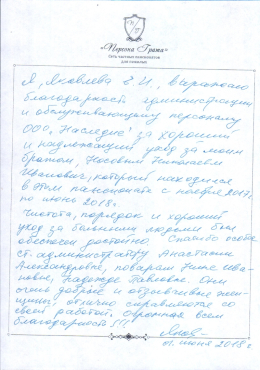 «Персона Грата»
сеть частных пансионатов
для пожилых
Я, Яковлева Е.И., выражаю
благодарность администрации
и обслуживающему персоналу
ООО „Наследие" за хороший
и надлежащий уход за моим
братом, Носовым Николаем
Ивановичем, который находился
в этом пансионате с ноября 2017г.
по июнь 2018г.
Чистота, порядок и хороший
уход за больными людьми был
обеспечен достойно. Спасибо
ст. администратору Анастасии
Александровне, поварам Нине Ива-
новне, Надежде Павловне. Они
очень добрые и отзывчивые жен-
щины, отлично справляются со
своей работой. Огромная всем
благодарность!!!
июня 2018 г